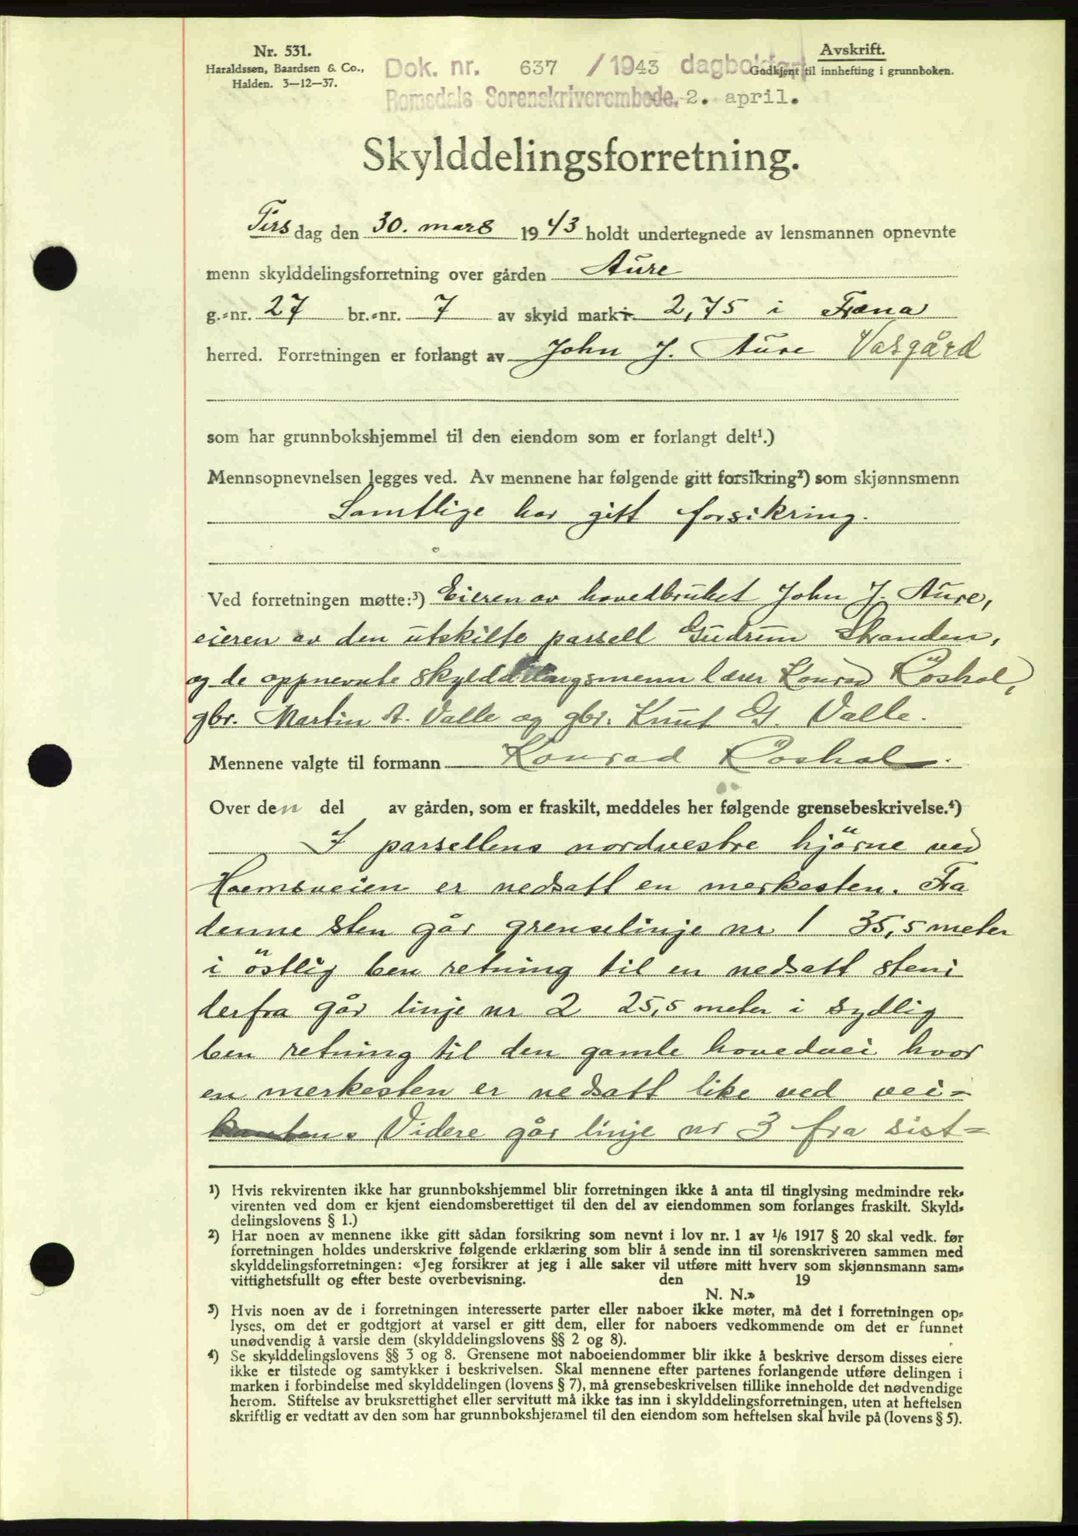 Nr. 531.
Haraldssen, Baardsen & Co.,
Halden. 3—12—37.
Avskrift.
Godkjent til innhefting i grunnboken.
Dok. nr. 637 /1943 dagboken
Romsdals Sorenskriverembede. 2. april.
Skylddelingsforretning.
Tirsdag den 30. mars 1943 holdt undertegnede av lensmannen opnevnte
menn skylddelingsforretning over gården Aure
g.-nr. 27 br.-nr. 7 av skyld mark 2,75 i Fræna
herred. Forretningen er forlangt av John J. Aure Vasgård
som har grunnbokshjemmel til den eiendom som er forlangt delt¹.)
Mennsopnevnelsen legges ved. Av mennene har følgende gitt forsikring²) som skjønnsmenn
Samtlige har gitt forsikring.
Ved forretningen møtte:³) Eieren av hovedbruket John J. Aure,
eieren av den utskilte parsell Gudrun Stranden,
og de oppnevnte skylddelingsmenn lærer Konrad Röshol,
gbr. Martin A. Valle og gbr. Knut G. Valle.
Mennene valgte til formann Konrad Röshol.
Over den del av gården, som er fraskilt, meddeles her følgende grensebeskrivelse.⁴)
I parsellens nordvestre hjörne ved
Hoemsveien er nedsatt en merkesten. Fra
denne sten går grenselinje nr 1 35,5 meter
i östlig ben retning til en nedsatt sten;
derfra går linje nr 2 25,5 meter i sydlig
ben retning til den gamle hovedvei hvor
en merkesten er nedsatt like ved vei=
kanten. Videre går linje nr 3 fra sist=
¹) Hvis rekvirenten ikke har grunnbokshjemmel blir forretningen ikke å anta til tinglysing medmindre rek-
virenten ved dom er kjent eiendomsberettiget til den del av eiendommen som forlanges fraskilt. Skyld-
delingslovens § 1.)
²) Har noen av mennene ikke gitt sådan forsikring som nevnt i lov nr. 1 av 1/6 1917 § 20 skal vedk. før
forretningen holdes underskrive følgende erklæring som blir å sende inn til sorenskriveren sammen med
skylddelingsforretningen: «Jeg forsikrer at jeg i alle saker vil utføre mitt hverv som skjønnsmann sam-
vittighetsfullt og efter beste overbevisning. den 19
N. N.»
³) Hvis noen av de i forretningen interesserte parter eller naboer ikke møter, må det i forretningen op-
lyses, om det er godtgjort at varsel er gitt dem, eller for naboers vedkommende om det er funnet
unødvendig å varsle dem (skylddelingslovens §§ 2 og 8).
⁴) Se skylddelingslovens §§ 3 og 8. Grensene mot naboeiendommer blir ikke å beskrive dersom disses eiere
ikke er tilstede og samtykker i beskrivelsen. Skal mennene efter partenes forlangende utføre delingen i
marken i forbindelse med skylddelingen (lovens § 7), må grensebeskrivelsen tillike inneholde det nødvendige
herom. Stiftelse av bruksrettighet eller servitutt må ikke tas inn i skylddelingsforretningen, uten at heftelsen
skriftlig er vedtatt av den som har grunnbokshjemmel til den eiendom som heftelsen skal hvile på (lovens § 5).